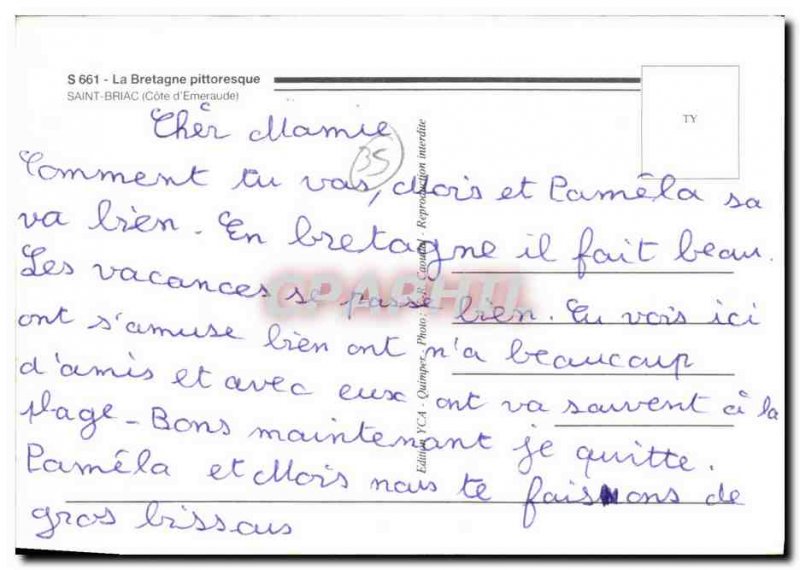 S 661 - La Bretagne pittoresque
SAINT-BRIAC (Côte d'Emeraude)
TY
Chèr Mamie
35
Comment tu vas, Mois et Paméla sa
va bien. En bretagne il fait beau.
Les vacances se passe bien. Tu vois ici
ont s'amuse bien ont n'a beaucoup
d'amis et avec eux ont va souvent à la
plage - Bons maintenant je quitte.
Paméla et Mois nous te faisons de
gros bissous
Edition YCA - Quimper - Photo : R. - Reproduction interdite
CPAPHIL